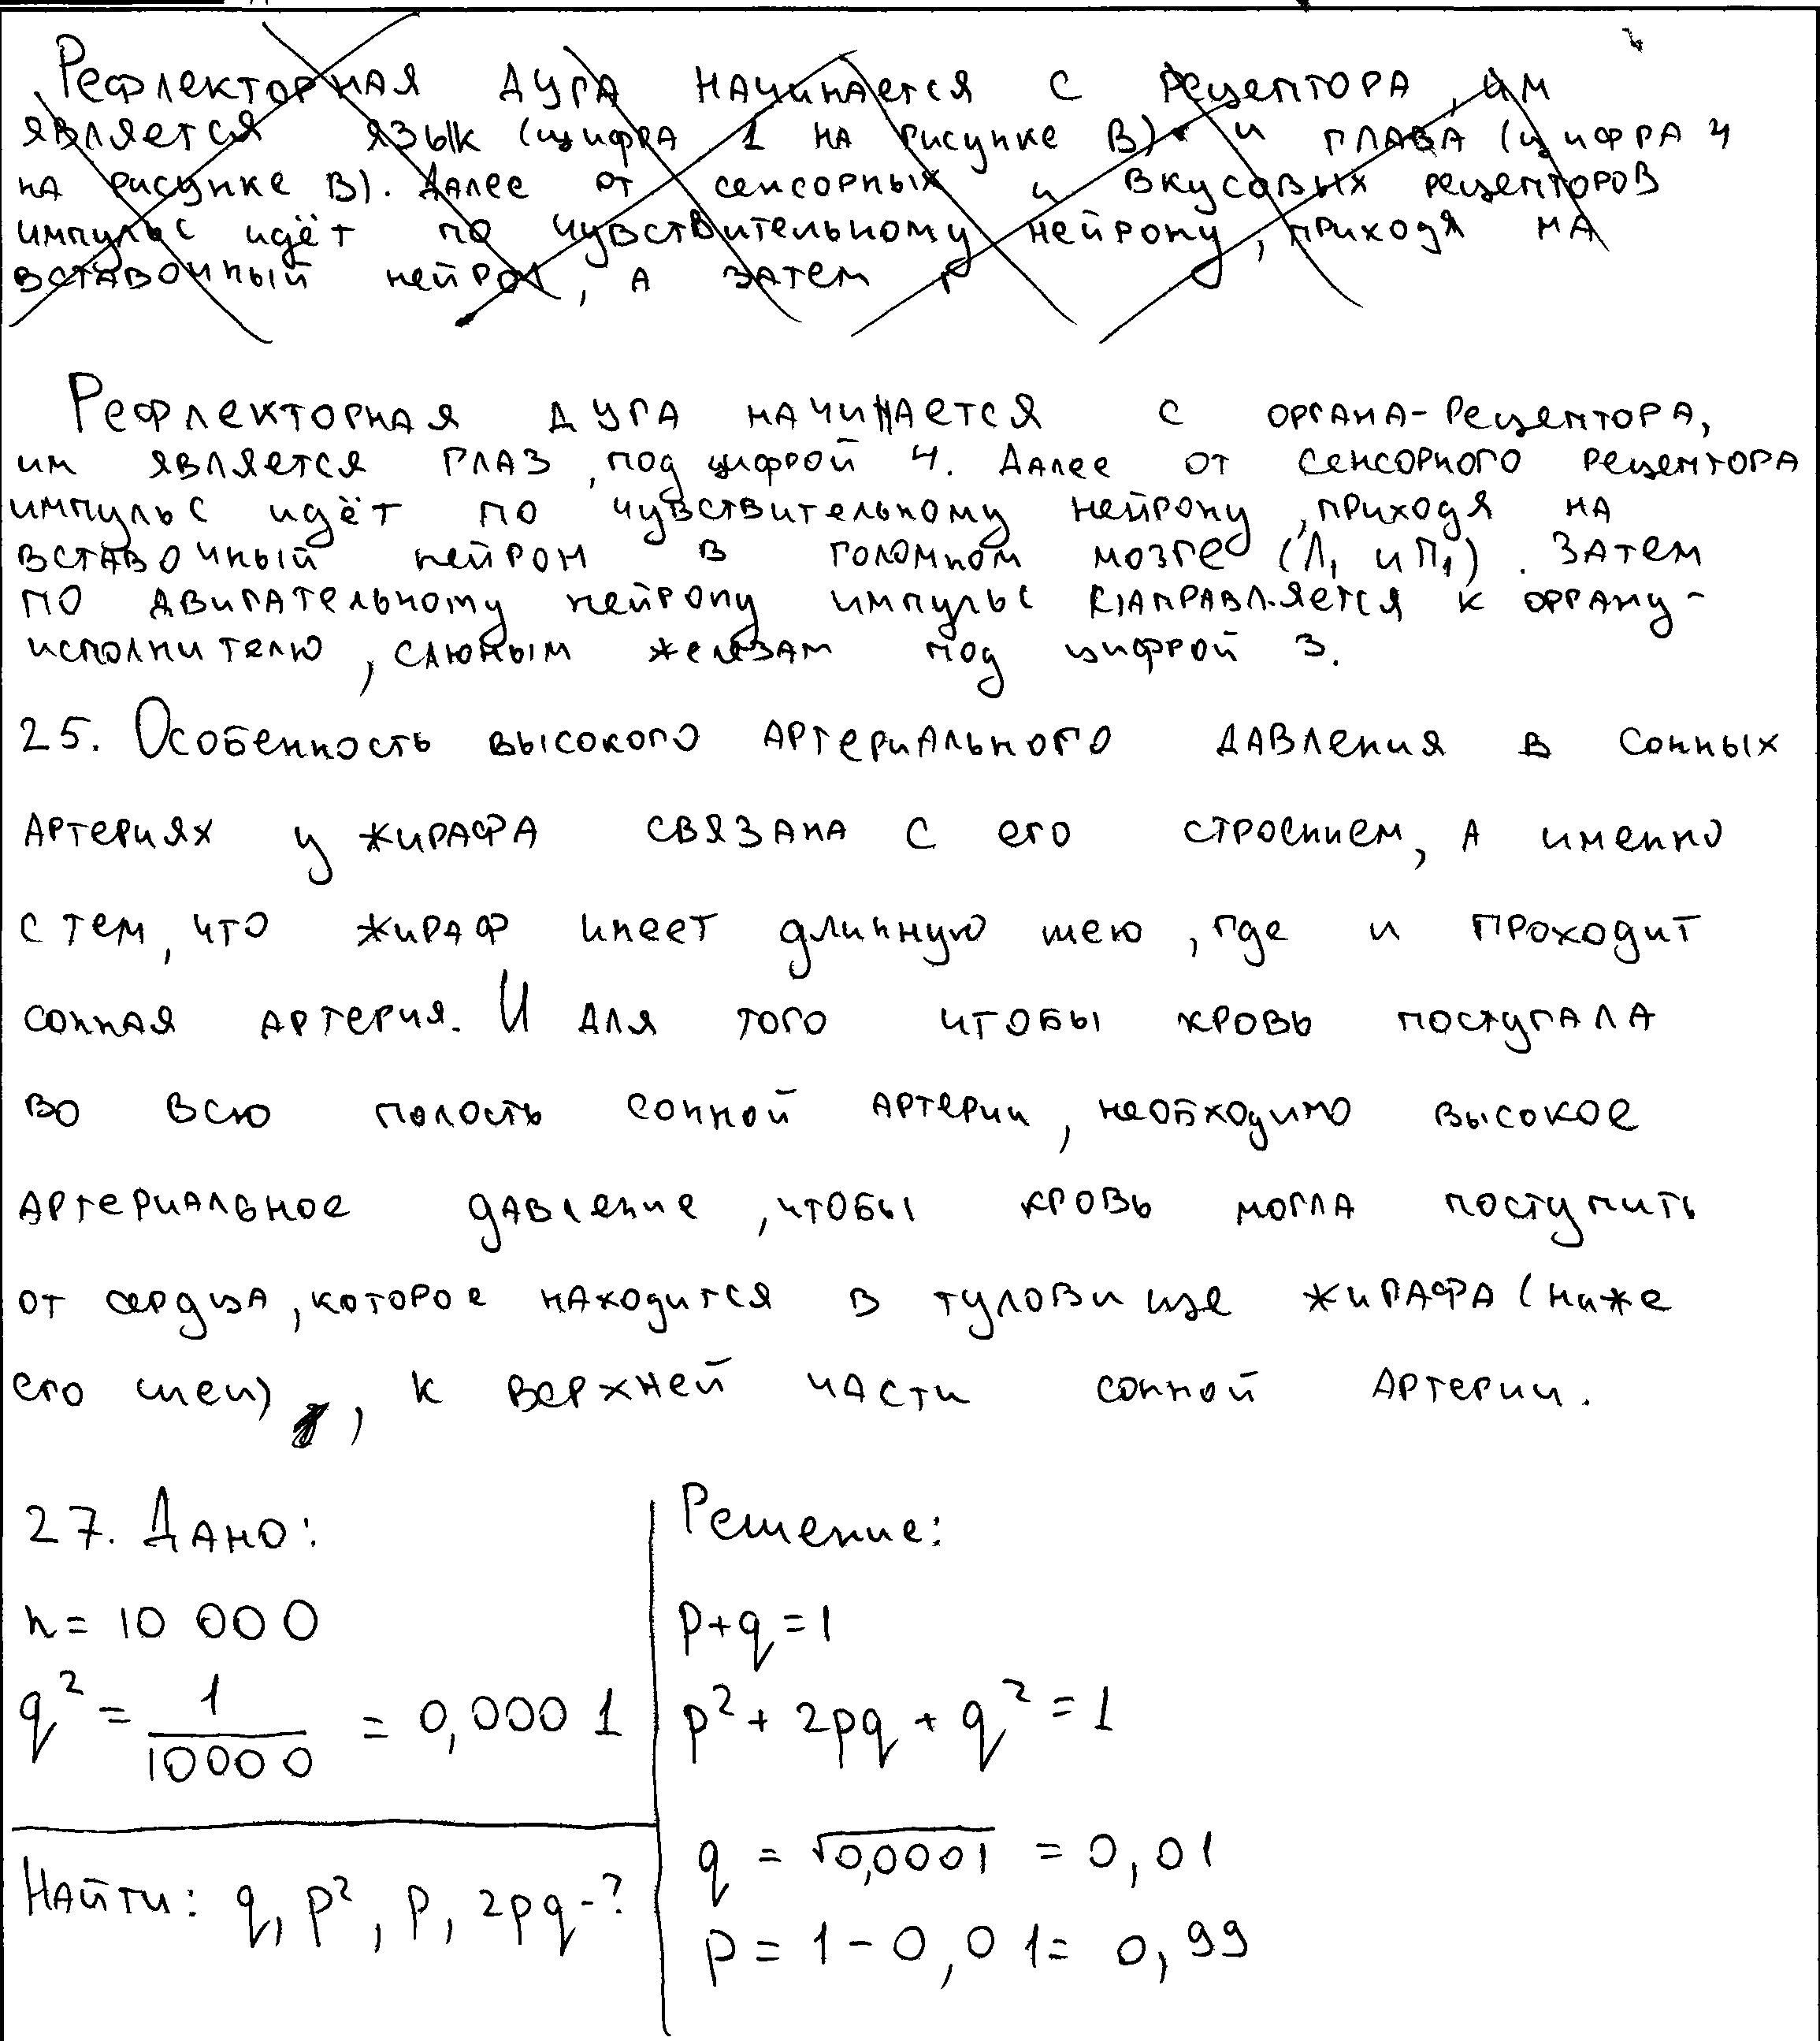 Рефлекторная дуга начинается с рецептора, им
является язык (цифра 1 на рисунке В) и глаза (цифра 4
на рисунке В). Далее от сенсорных и вкусовых рецепторов
импульс идёт по чувствительному нейрону, приходя на
вставочный нейрон, а затем
Рефлекторная дуга начинается с органа-рецептора,
им является глаз, под цифрой 4. Далее от сенсорного рецептора
импульс идёт по чувствительному нейрону, приходя на
вставочный нейрон в головном мозге (Л₁ и П₁). Затем
по двигательному нейрону импульс направляется к органу-
исполнителю, слюным железам под цифрой 3.
25. Особенность высокого артериального давления в сонных
артериях у жирафа связана с его строением, а именно
с тем, что жираф имеет длинную шею, где и проходит
сонная артерия. И для того чтобы кровь поступала
во всю полость сонной артерии, необходимо высокое
артериальное давление, чтобы кровь могла поступить
от сердца, которое находится в туловище жирафа (ниже
его шеи), к верхней части сонной артерии.
27. Дано:
n = 10 000
q² = 1/10000 = 0,0001
Найти: q, p², p, 2pq-?
Решение:
p+q=1
p² + 2pq + q² = 1
q = √0,0001 = 0,01
p = 1 - 0,01 = 0,99